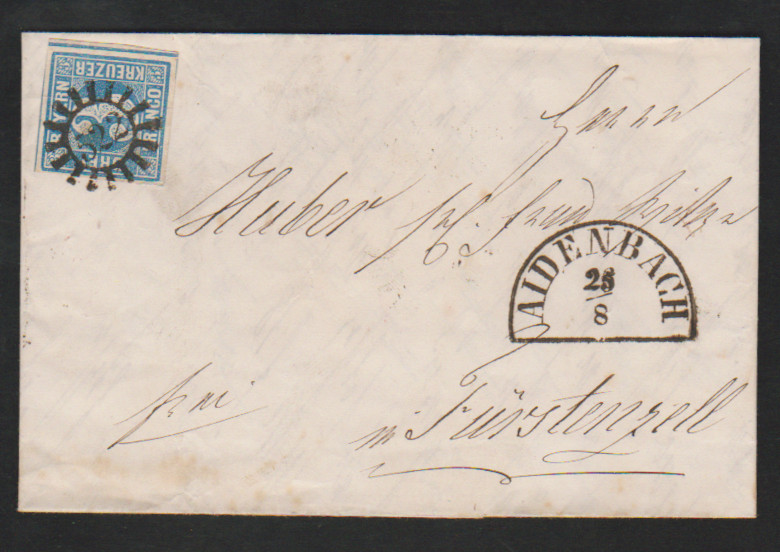 BAYERN
KREUZER
FRANCO
3
Herrn
Huber
AIDENBACH
25
8
frei
in Fürstenzell